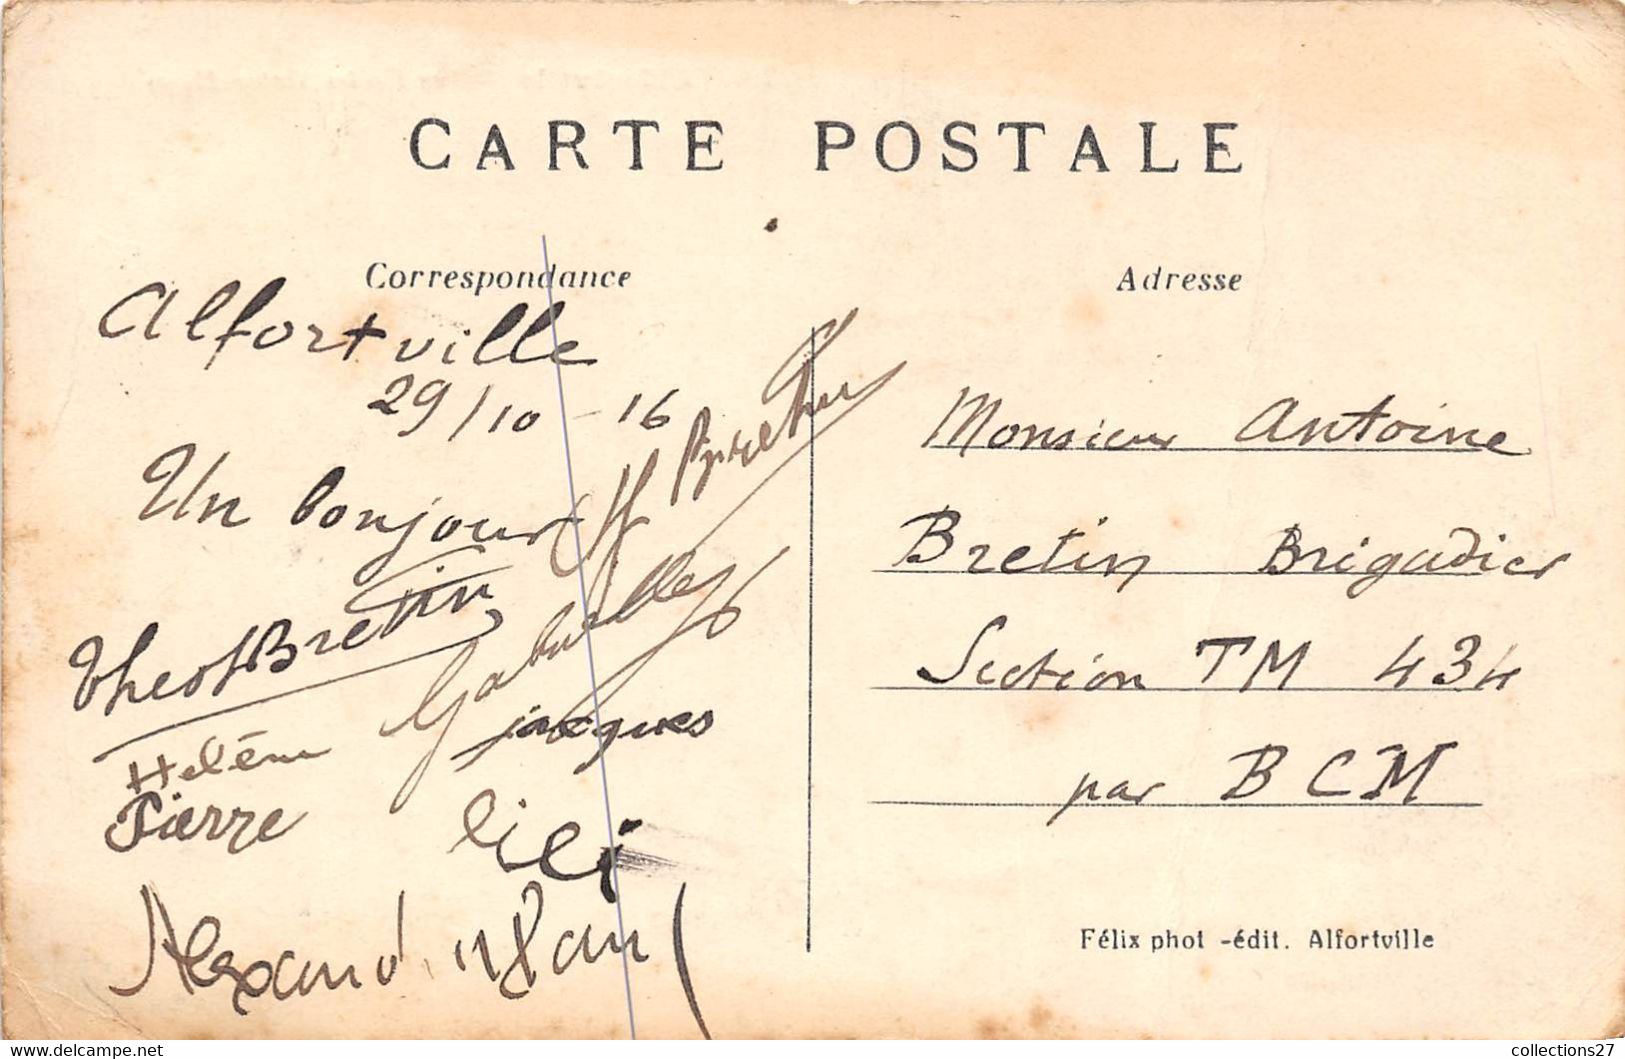 CARTE POSTALE
Correspondance
Alfortville
29/10-16
Un bonjour
Theof Bretin
Gabrielle
jacques
Hélène
Pierre
lili
Alexand
Adresse
Monsieur Antoine
Bretin Brigadier
Section TM 434
par BCM
Félix phot -édit. Alfortville
collections27